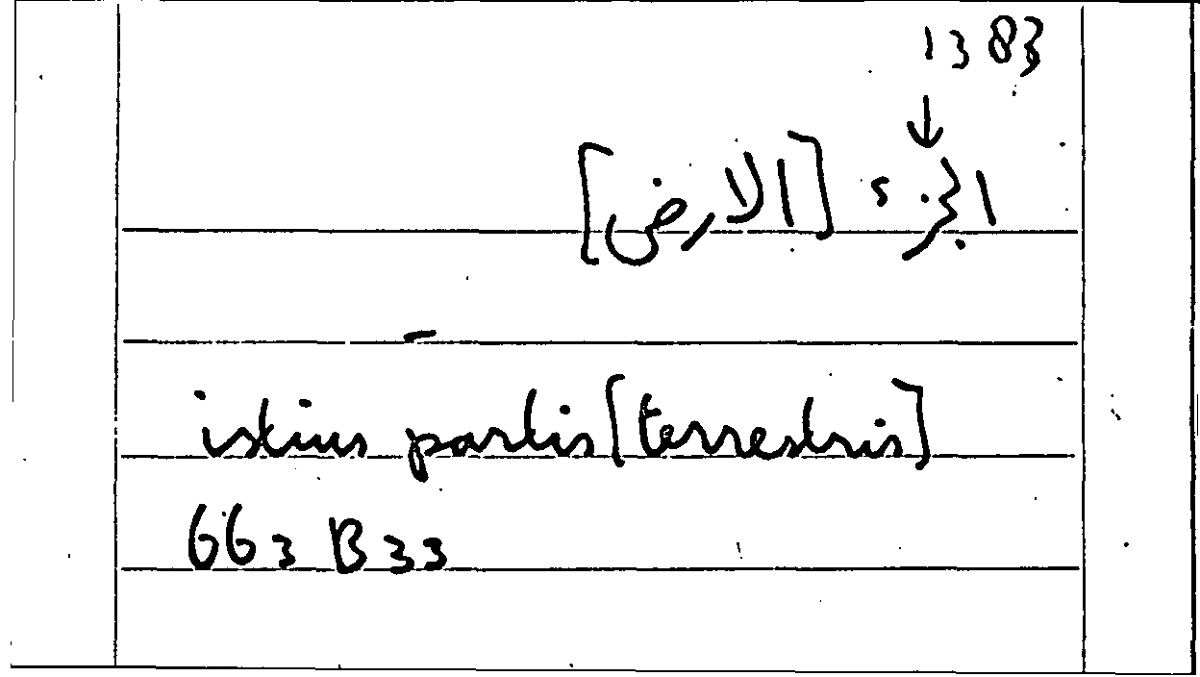 1383
↓
الجزء [الارض]
–
istius partis [terrestris]
663 B 33